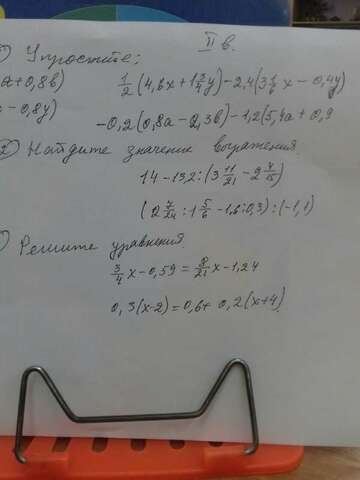 II в.
Упростите:
а+0,8в) 1/2(4,6x+1 3/4y)-2,4(3 1/6x-0,4y)
-0,8y) -0,2(0,8a-2,3в)-1,2(5,4a+0,9
2) Найдите значение выражения.
14-13,2:(3 11/21-2 4/15)
(2 7/24:1 5/6-1,6:0,3):(-1,1)
Решите уравнения.
3/4x-0,59=8/21x-1,24
0,3(x-2)=0,6+0,2(x+4)